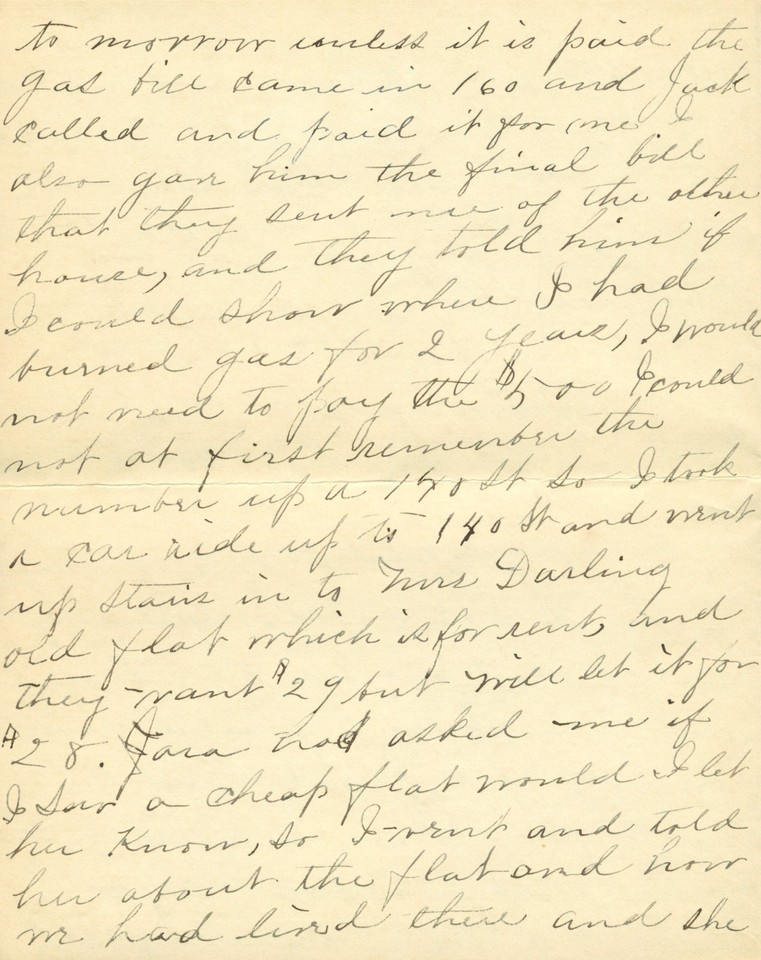 to morrow unless it is paid the
gas bill came in 160 and Jack
called and paid it for me I
also gave him the final bill
that they sent me of the other
house, and they told him if
I could show where I had
burned gas for 2 years, I would
not need to pay the $500 I could
not at first remember the
number up a 140 St so I took
a car ride up to 140 St and went
up stairs in to Mrs Darling
old flat which is for rent, and
they want $29 but will let it for
$28. had asked me if
I saw a cheap flat would I let
her Know, so I went and told
her about the flat and how
we had lived there and she